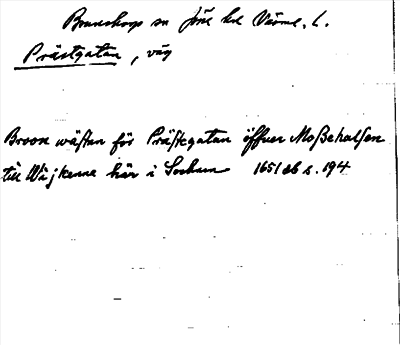 Brunskogs sn Jösse hd Värml. l.
Prästgatan, väg
Broon wästan för Prästegatan öffuer Moßehalsen
till Wijkerne här i Sochnen 1651 db s. 194